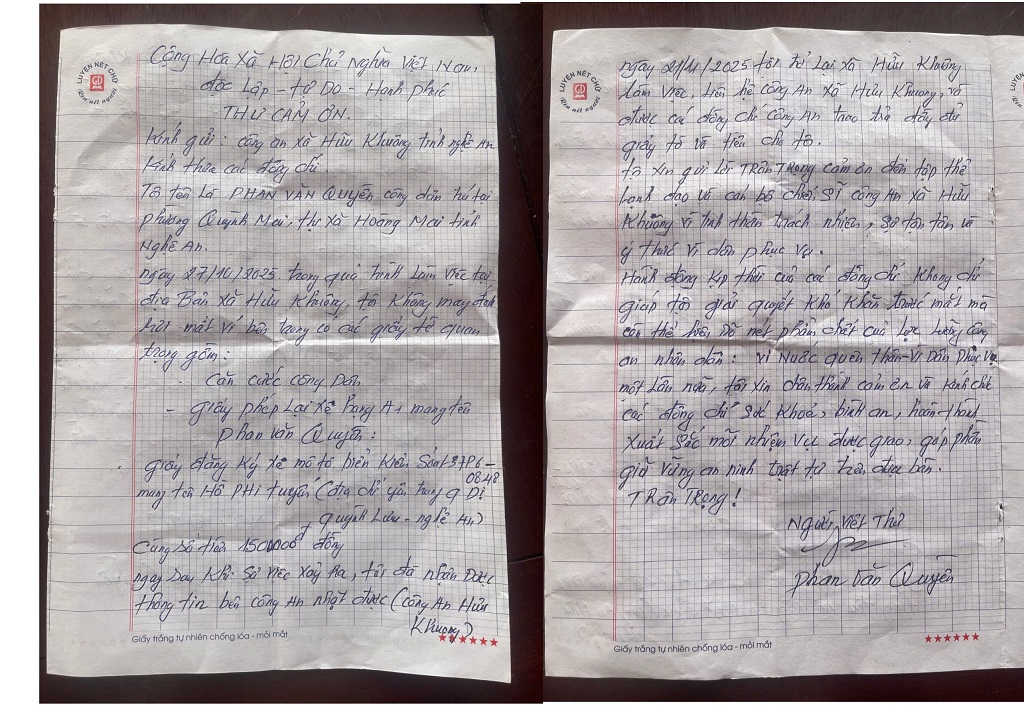 LUYỆN NÉT CHỮ
Rèn nết người
Cộng Hòa Xã Hội Chủ nghĩa Việt Nam,
độc Lập - tự Do - Hạnh phúc
THƯ CẢM ƠN.
Kính gửi: công an xã Hữu Khuông tỉnh nghệ An
Kính thưa các đồng chí.
Tô tên là PHAN VĂN QUYỀN công dân trú tại
phường Quỳnh Mai, thị xã Hoàng Mai tỉnh
Nghệ An.
ngày 27/10/2025 trong quá trình Làm việc tại
địa Bàn xã Hữu Khuông, tô không may đánh
rơi mất ví bên trong có các giấy tờ quan
trọng gồm:
Căn cước công Dân
- giấy phép Lại Xe hạng A1 mang tên
phan văn Quyền:
giấy đăng ký xe mô tô biển kiểm Soát 37P6 -
0848
mang tên Hồ PHI tuyến (địa chỉ
quỳnh Lưu - nghệ An)
Cùng số tiền 1500000 đồng
ngay Sau Khi Sự việc xảy Ra, tôi đã nhận Được
thông tin bên công An nhặt được (công An Hữu
Khuông)
Giấy trắng tự nhiên chống lóa - mỏi mắt
LUYỆN NÉT CHỮ
Rèn nết người
ngày 21/11/2025 tôi trở Lại xã Hữu Khuông
Làm việc, liên hệ công An xã Hữu Khuông, và
được các đồng chí công An trao trả đầy đủ
giấy tờ và tiền cho tô.
tô xin gửi lời TRân TRọng cảm ơn đến tập thể
Lãnh đạo và cán bộ chiến SĨ công An xã Hữu
Khuông vì tinh thần trách nhiệm, Sự tận tâm và
ý thức vì dân phục vụ.
Hành động kịp thời của các đồng chí không chỉ
giúp tô giải quyết Khó Khăn trước mắt mà
còn thể hiện Rõ nét phẩm chất của Lực Lượng Công
an nhân dân: vì Nước quên thân - Vì Dân phục vụ
một lần nữa, tôi xin chân thành cảm ơn và kính chúc
các đồng chí Sức Khoẻ, bình an, hoàn thành
Xuất Sắc mỗi nhiệm vụ được giao, góp phần
giữ vững an ninh trật tự trên được bàn.
TRân TRọng!
Người viết Thư
phan văn Quyền
Giấy trắng tự nhiên chống lóa - mỏi mắt